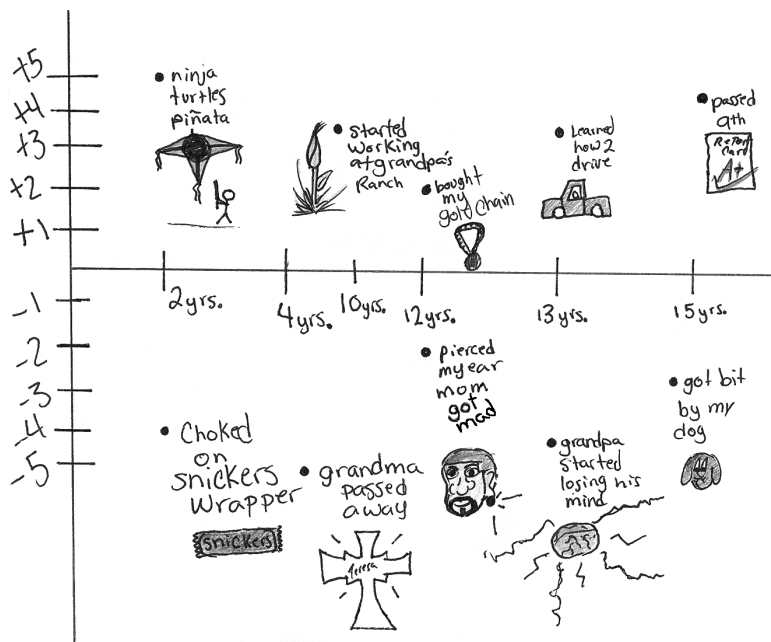 +5
+4
+3
+2
+1
-1
-2
-3
-4
-5
ninja
turtles
piñata
started
working
at grandpa's
Ranch
bought
my
gold chain
Learned
how 2
drive
passed
9th
Report
Card
A+
2yrs.
4yrs.
10yrs.
12yrs.
13yrs.
15yrs.
Choked
on
snickers
wrapper
snickers
grandma
passed
away
Teresa
pierced
my ear
mom
got
mad
grandpa
started
losing his
mind
got bit
by my
dog